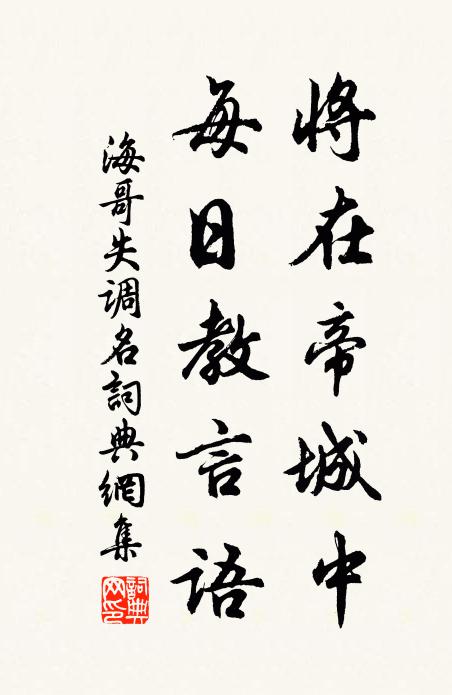 將在帝城中
每日教言語
海哥失调名詞典網集
詞典网印